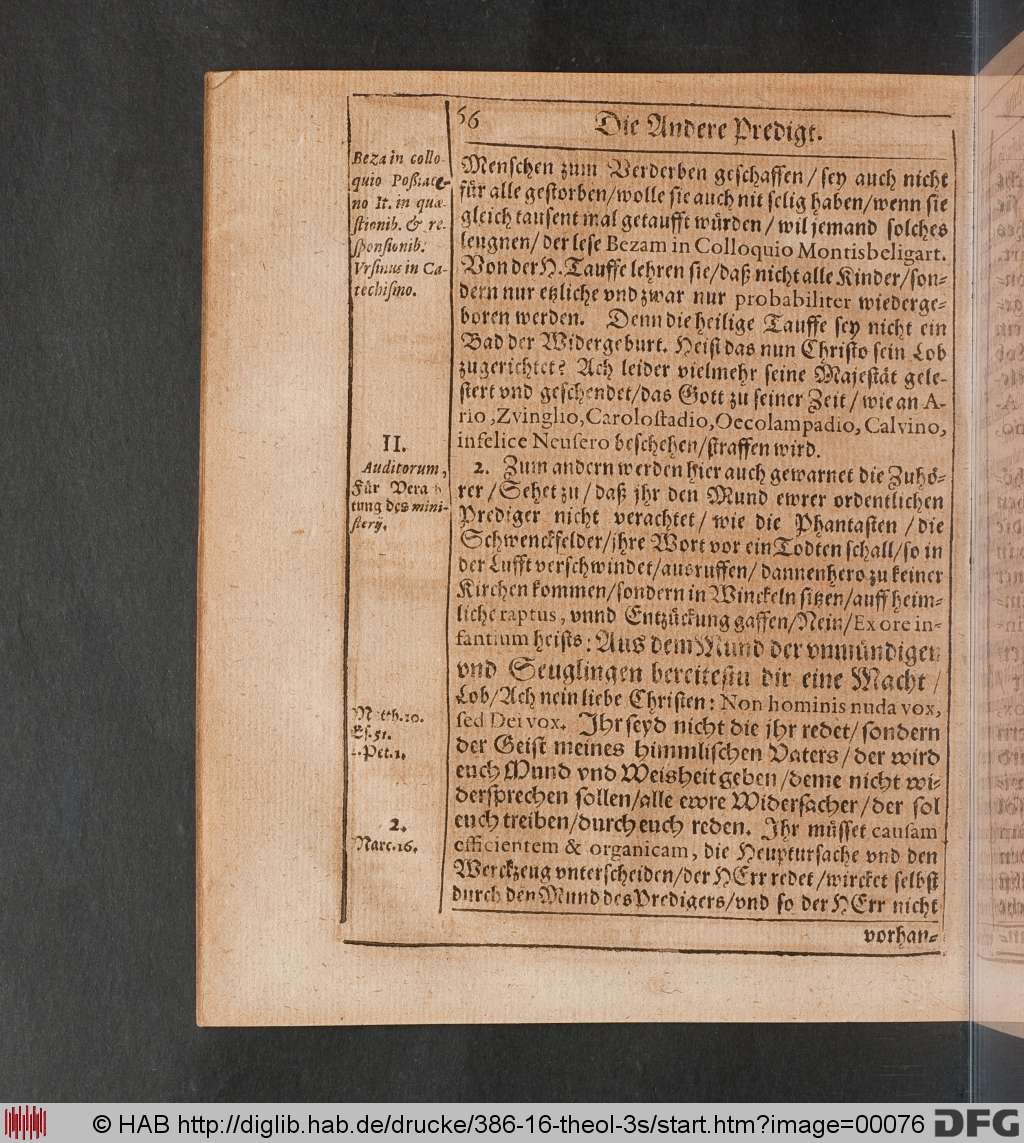 56
Die Andere Predigt.
Beza in collo-
quio Poßiace-
no It. in quæ-
stionib. & re-
sponsionib:
Vrsinus in Ca-
techismo.
Menschen zum Verderben geschaffen / sey auch nicht
für alle gestorben / wolle sie auch nit selig haben / wenn sie
gleich tausent mal getaufft würden / wil jemand solches
leugnen / der lese Bezam in Colloquio Montisbeligart.
Von der H. Tauffe lehren sie / daß nicht alle Kinder / son-
dern nur etzliche vnd zwar nur probabiliter wiederge-
boren werden. Denn die heilige Tauffe sey nicht ein
Bad der Widergeburt. Heist das nun Christo sein Lob
zugerichtet? Ach leider vielmehr seine Majestät gele-
stert vnd geschendet / das Gott zu seiner Zeit / wie an A-
rio, Zvinglio, Carolostadio, Oecolampadio, Calvino,
infelice Neusero beschehen / straffen wird.
II.
Auditorum,
Für Vera
tung des mini-
sterij.
2. Zum andern werden hier auch gewarnet die Zuhö-
rer / Sehet zu / daß jhr den Mund ewrer ordentlichen
Prediger nicht verachtet / wie die Phantasten / die
Schwenckfelder / jhre Wort vor ein Todten schall / so in
der Lufft verschwindet / ausruffen / dannenhero zu keiner
Kirchen kommen / sondern in Winckeln sitzen / auff heim-
liche raptus, vnnd Entzückung gaffen / Nein / Ex ore in-
fantium heists: Aus dem Mund der vnmündigen
vnd Seuglingen bereitestu dir eine Macht /
Lob / Ach nein liebe Christen: Non hominis nuda vox,
sed Dei vox. Jhr seyd nicht die jhr redet / sondern
der Geist meines himmlischen Vaters / der wird
euch Mund vnd Weisheit geben / deme nicht wi-
dersprechen sollen / alle ewre Widersacher / der sol
euch treiben / durch euch reden. Jhr müsset causam
efficientem & organicam, die Heuptursache vnd den
Werckzeug vnterscheiden / der HErr redet / wircket selbst
durch den Mund des Predigers / vnd so der HErr nicht
Matth. 10.
Es. 51.
1. Pet. 1.
2.
Marc. 16.
vorhan-
© HAB http://diglib.hab.de/drucke/386-16-theol-3s/start.htm?image=00076
DFG